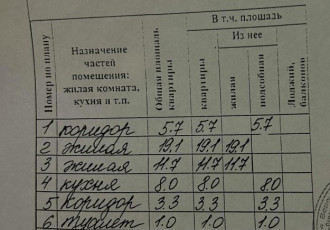 Номер по плану
Назначение
частей
помещения:
жилая комната,
кухня и т.п.
Общая площадь
квартиры
В т.ч. площадь
квартиры
Из нее
жилая
подсобная
Лоджий,
балконов
1 коридор 5.7 5.7 5.7
2 жилая 19,1 19,1 19,1
3 жилая 11.7 11.7 11.7
4 кухня 8.0 8.0 8.0
5 коридор 3.3 3.3 3.3
6 туалет 1.0 1.0 1.0